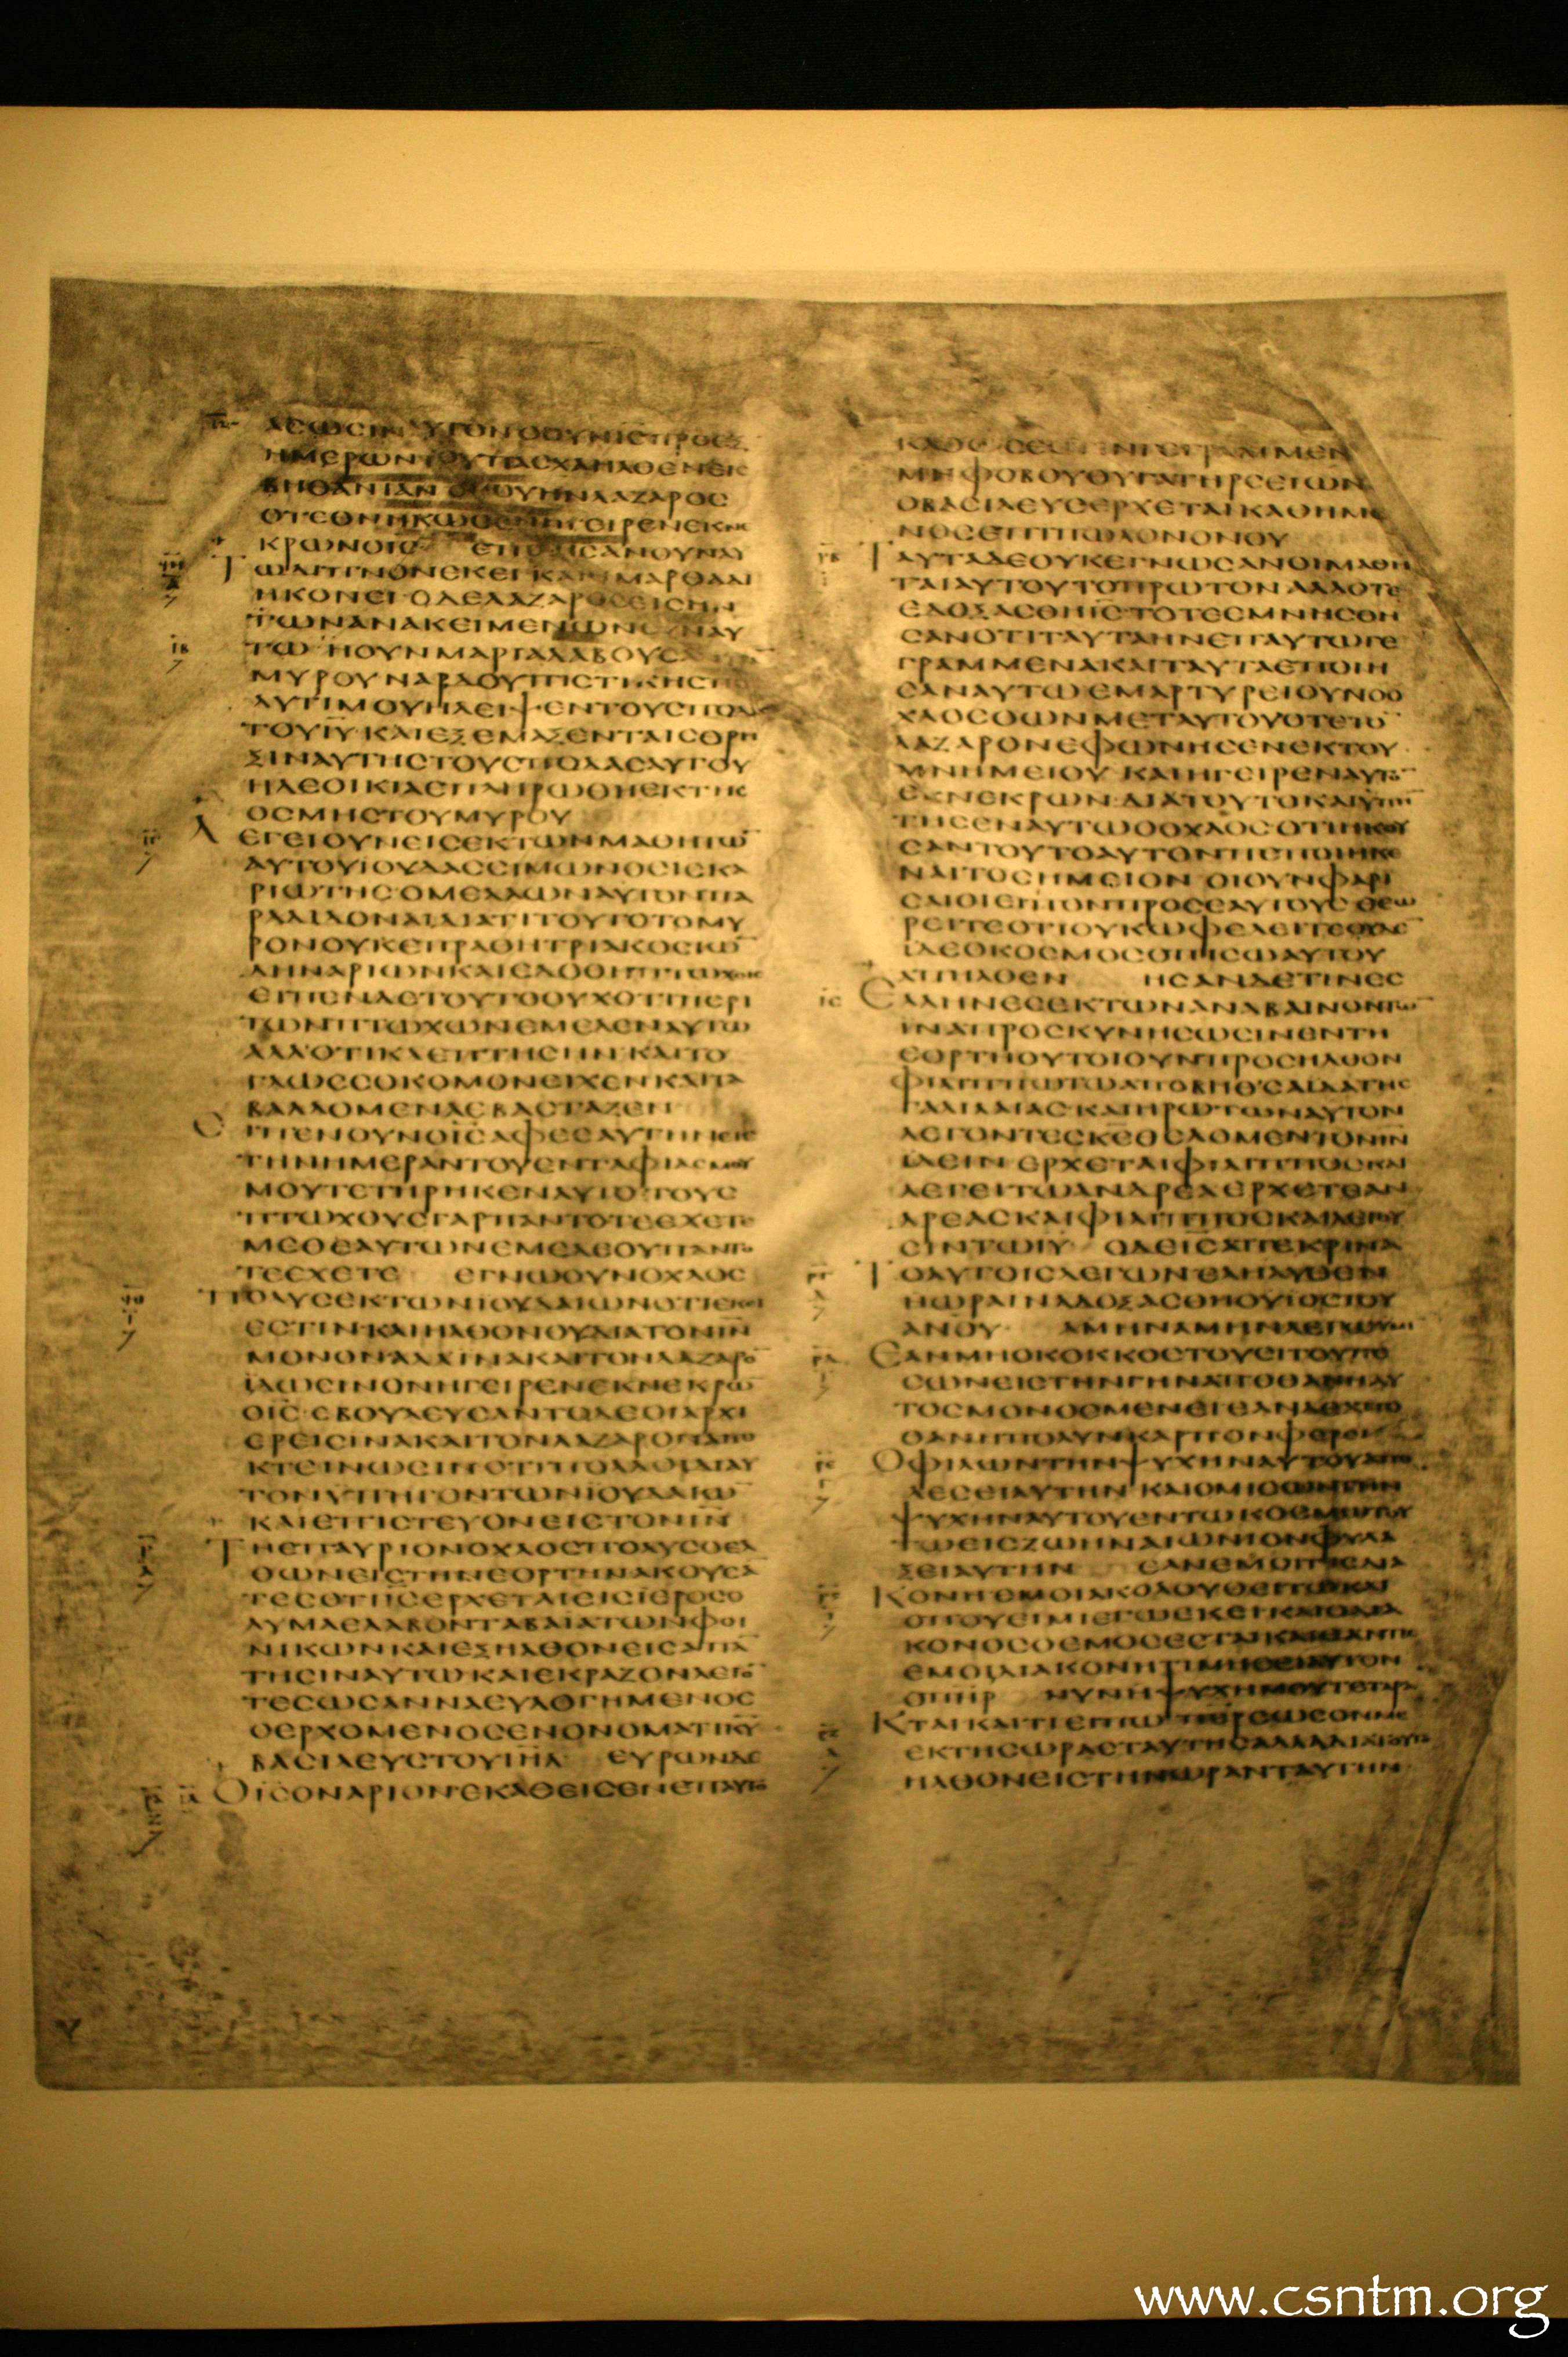 ΑСΩСΙΝΑΥΤΟΝΟΟΥΝΙСΠΡΟΕΞ
ΗΜΕΡΩΝΤΟΥΠΑСΧΑΗΛΘΕΝΕΙС
ΒΗΘΑΝΙΑΝΟΠΟΥΗΝΛΑΖΑΡΟС
ΗΓΕΙΡΕΝΕΚΝΕ
ΚΡΩΝΟΙС ΕΠΟΙΗСΑΝΟΥΝΑΥ
ΤΩΔΙΠΝΟΝΕΚΕΙΚΑΙΗΜΑΡΘΑΔΙ
ΗΚΟΝΕΙΟΔΕΛΑΖΑΡΟСΕΙСΗΝ
ΤΩΝΑΝΑΚΕΙΜΕΝΩΝСΥΝΑΥ
ΤΩ ΗΟΥΝΜΑΡΙΑΛΑΒΟΥСΑ
ΜΥΡΟΥΝΑΡΔΟΥΠΙСΤΙΚΗС
ΛΥΤΙΜΟΥΗΛΕΙΨΕΝΤΟΥСΠΟΔΑС
ΤΟΥΙΥΚΑΙΕΞΕΜΑΞΕΝΤΑΙСΘΡΙ
ΞΙΝΑΥΤΗСΤΟΥСΠΟΔΑСΑΥΤΟΥ
ΗΔΕΟΙΚΙΑΕΠΛΗΡΩΘΗΕΚΤΗС
ΟСΜΗСΤΟΥΜΥΡΟΥ
ΛΕΓΕΙΟΥΝΕΙСΕΚΤΩΝΜΑΘΗΤΩ
ΑΥΤΟΥΙΟΥΔΑССΙΜΩΝΟСΙСΚΑ
ΡΙΩΤΗСΟΜΕΛΛΩΝΑΥΤΟΝΠΑ
ΡΑΔΙΔΟΝΑΙΔΙΑΤΙΤΟΥΤΟΤΟΜΥ
ΡΟΝΟΥΚΕΠΡΑΘΗΤΡΙΑΚΟСΙΩ
ΔΗΝΑΡΙΩΝΚΑΙΕΔΟΘΗΠΤΩΧΟΙС
ΕΙΠΕΝΔΕΤΟΥΤΟΟΥΧΟΤΙΠΕΡΙ
ΤΩΝΠΤΩΧΩΝΕΜΕΛΕΝΑΥΤΩ
ΑΛΛΟΤΙΚΛΕΠΤΗСΗΝΚΑΙΤΟ
ΓΛΩССΟΚΟΜΟΝΕΙΧΕΝΚΑΙΤΑ
ΒΑΛΛΟΜΕΝΑΕΒΑСΤΑΖΕΝ
ΕΙΠΕΝΟΥΝΟΙСΑΦΕСΑΥΤΗΝΕΙС
ΤΗΝΗΜΕΡΑΝΤΟΥΕΝΤΑΦΙΑСΜΟΥ
ΜΟΥΤΕΤΗΡΗΚΕΝΑΥΤΟΤΟΥС
ΠΤΩΧΟΥСΓΑΡΠΑΝΤΟΤΕΕΧΕΤΕ
ΜΕΘΕΑΥΤΩΝΕΜΕΔΕΟΥΠΑΝΤΟ
ΤΕΕΧΕΤΕ ΕΓΝΩΟΥΝΟΧΛΟС
ΠΟΛΥСΕΚΤΩΝΙΟΥΔΑΙΩΝΟΤΙΕΚΕΙ
ΕСΤΙΝΚΑΙΗΛΘΟΝΟΥΔΙΑΤΟΝΙΝ
ΜΟΝΟΝΑΛΛΙΝΑΚΑΙΤΟΝΛΑΖΑΡΟ
ΙΔΩСΙΝΟΝΗΓΕΙΡΕΝΕΚΝΕΚΡΩ
ΟΙС ΕΒΟΥΛΕΥСΑΝΤΟΔΕΟΙΑΡΧΙ
ΕΡΕΙСΙΝΑΚΑΙΤΟΝΛΑΖΑΡΟΝΑΠΟ
ΚΤΕΙΝΩСΙΝΟΤΙΠΟΛΛΟΙΔΙΑΥ
ΤΟΝΥΠΗΓΟΝΤΩΝΙΟΥΔΑΙΩ
ΚΑΙΕΠΙСΤΕΥΟΝΕΙСΤΟΝΙΝ
ΤΗΕΠΑΥΡΙΟΝΟΧΛΟСΠΟΛΥСΟΕΛ
ΘΩΝΕΙСΤΗΝΕΟΡΤΗΝΑΚΟΥСΑ
ΤΕСΟΤΙΙСΕΡΧΕΤΑΙΕΙСΙΕΡΟСΟ
ΛΥΜΑΕΛΑΒΟΝΤΑΒΑΙΑΤΩΝΦΟΙ
ΝΙΚΩΝΚΑΙΕΞΗΛΘΟΝΕΙСΑΠΑ
ΤΗСΙΝΑΥΤΩΚΑΙΕΚΡΑΖΟΝΛΕΓΟ
ΤΕСΩСΑΝΝΑΕΥΛΟΓΗΜΕΝΟС
ΟΕΡΧΟΜΕΝΟСΕΝΟΝΟΜΑΤΙΚΥ
ΒΑСΙΛΕΥСΤΟΥΙΗΛ ΕΥΡΩΝΔΕ
ΟΙСΟΝΑΡΙΟΝΕΚΑΘΕΙСΕΝΕΠΑΥΤΟ
ΓΕΓΡΑΜΜΕΝ
ΜΗΦΟΒΟΥΘΥΓΑΤΗΡСΕΙΩΝ
ΟΒΑСΙΛΕΥСΕΡΧΕΤΑΙΚΑΘΗΜΕ
ΝΟСΕΠΙΠΩΛΟΝΟΝΟΥ
ΤΑΥΤΑΔΕΟΥΚΕΓΝΩСΑΝΟΙΜΑΘΗ
ΤΑΙΑΥΤΟΥΤΟΠΡΩΤΟΝΑΛΛΟΤΕ
ΕΔΟΞΑСΘΗΙСΤΟΤΕΕΜΝΗСΘΗ
СΑΝΟΤΙΤΑΥΤΑΗΝΕΠΑΥΤΩΓΕ
ΓΡΑΜΜΕΝΑΚΑΙΤΑΥΤΑΕΠΟΙΗ
СΑΝΑΥΤΩΕΜΑΡΤΥΡΕΙΟΥΝΟΟ
ΧΛΟСΟΩΝΜΕΤΑΥΤΟΥΟΤΕΤΟ
ΛΑΖΑΡΟΝΕΦΩΝΗСΕΝΕΚΤΟΥ
ΜΝΗΜΕΙΟΥΚΑΙΗΓΕΙΡΕΝΑΥΤΟ
ΕΚΝΕΚΡΩΝΔΙΑΤΟΥΤΟΚΑΙΥΠΗ
ΤΗСΕΝΑΥΤΩΟΟΧΛΟСΟΤΙΗΚΟΥ
СΑΝΤΟΥΤΟΑΥΤΟΝΠΕΠΟΙΗΚΕ
ΝΑΙΤΟСΗΜΕΙΟΝ ΟΙΟΥΝΦΑΡΙ
СΑΙΟΙΕΙΠΟΝΠΡΟСΕΑΥΤΟΥСΘΕΩ
ΡΕΙΤΕΟΤΙΟΥΚΩΦΕΛΕΙΤΕΟΥΔΕ
ΙΔΕΟΚΟСΜΟСΟΠΙСΩΑΥΤΟΥ
ΑΠΗΛΘΕΝ ΗСΑΝΔΕΤΙΝΕС
ΕΛΛΗΝΕСΕΚΤΩΝΑΝΑΒΑΙΝΟΝΤΩ
ΙΝΑΠΡΟСΚΥΝΗСΩСΙΝΕΝΤΗ
ΕΟΡΤΗΟΥΤΟΙΟΥΝΠΡΟСΗΛΘΟΝ
ΦΙΛΙΠΠΩΤΩΑΠΟΒΗΘСΑΙΔΑΤΗС
ΓΑΛΙΛΑΙΑСΚΑΙΗΡΩΤΩΝΑΥΤΟΝ
ΛΕΓΟΝΤΕСΚΕΘΕΛΟΜΕΝΤΟΝΙΝ
ΙΔΕΙΝΕΡΧΕΤΑΙΦΙΛΙΠΠΟСΚΑΙ
ΛΕΓΕΙΤΩΑΝΔΡΕΑΕΡΧΕΤΕΑΝ
ΔΡΕΑСΚΑΙΦΙΛΙΠΠΟСΚΑΙΛΕΓΟΥ
СΙΝΤΩΙΥ ΟΔΕΙСΑΠΕΚΡΙΝΑ
ΤΟΑΥΤΟΙСΛΕΓΩΝΕΛΗΛΥΘΕΝ
ΗΩΡΑΙΝΑΔΟΞΑСΘΗΟΥΙΟСΤΟΥ
ΑΝΟΥ ΑΜΗΝΑΜΗΝΛΕΓΩΥΜΙ
ΕΑΝΜΗΟΚΟΚΚΟСΤΟΥСΙΤΟΥΠΕ
СΩΝΕΙСΤΗΝΓΗΝΑΠΟΘΑΝΗΑΥ
ΤΟСΜΟΝΟСΜΕΝΕΙΕΑΝΔΕΑΠΟ
ΘΑΝΗΠΟΛΥΝΚΑΡΠΟΝΦΕΡΕΙ
ΟΦΙΛΩΝΤΗΝΨΥΧΗΝΑΥΤΟΥΑΠΟ
ΛΕСΕΙΑΥΤΗΝΚΑΙΟΜΙСΩΝΤΗΝ
ΨΥΧΗΝΑΥΤΟΥΕΝΤΩΚΟСΜΩΤΟΥ
ΤΩΕΙСΖΩΗΝΑΙΩΝΙΟΝΦΥΛΑ
ΞΕΙΑΥΤΗΝ ΕΑΝΕΜΟΙΤΙСΔΙΑ
ΚΟΝΗΕΜΟΙΑΚΟΛΟΥΘΕΙΤΩΚΑΙ
ΟΠΟΥΕΙΜΙΕΓΩΕΚΕΙΚΑΙΟΔΙΑ
ΚΟΝΟСΟΕΜΟСΕСΤΑΙΚΑΙΕΑΝΤΙС
ΕΜΟΙΔΙΑΚΟΝΗΤΙΜΗСΕΙΑΥΤΟΝ
ΟΠΗΡ ΝΥΝΗΨΥΧΗΜΟΥΤΕΤΑΡΑ
ΚΤΑΙΚΑΙΤΙΕΙΠΩΠΕΡСΩСΟΝΜΕ
ΕΚΤΗСΩΡΑСΤΑΥΤΗСΑΛΛΑΔΙΑΤΟΥΤΟ
ΗΛΘΟΝΕΙСΤΗΝΩΡΑΝΤΑΥΤΗΝ
www.csntm.org